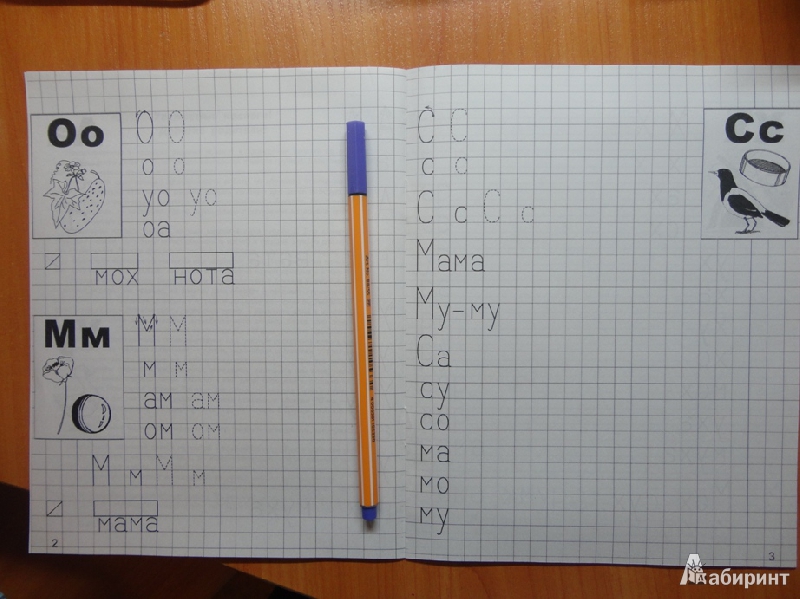 Оо
О О
о о
уо уо
оа
мох нота
Мм
М М
м м
ам ам
ом ом
М м М м
мама
2
Сс
С С
с с
С с С с
Мама
Му-му
Са
су
со
ма
мо
му
3
Лабиринт